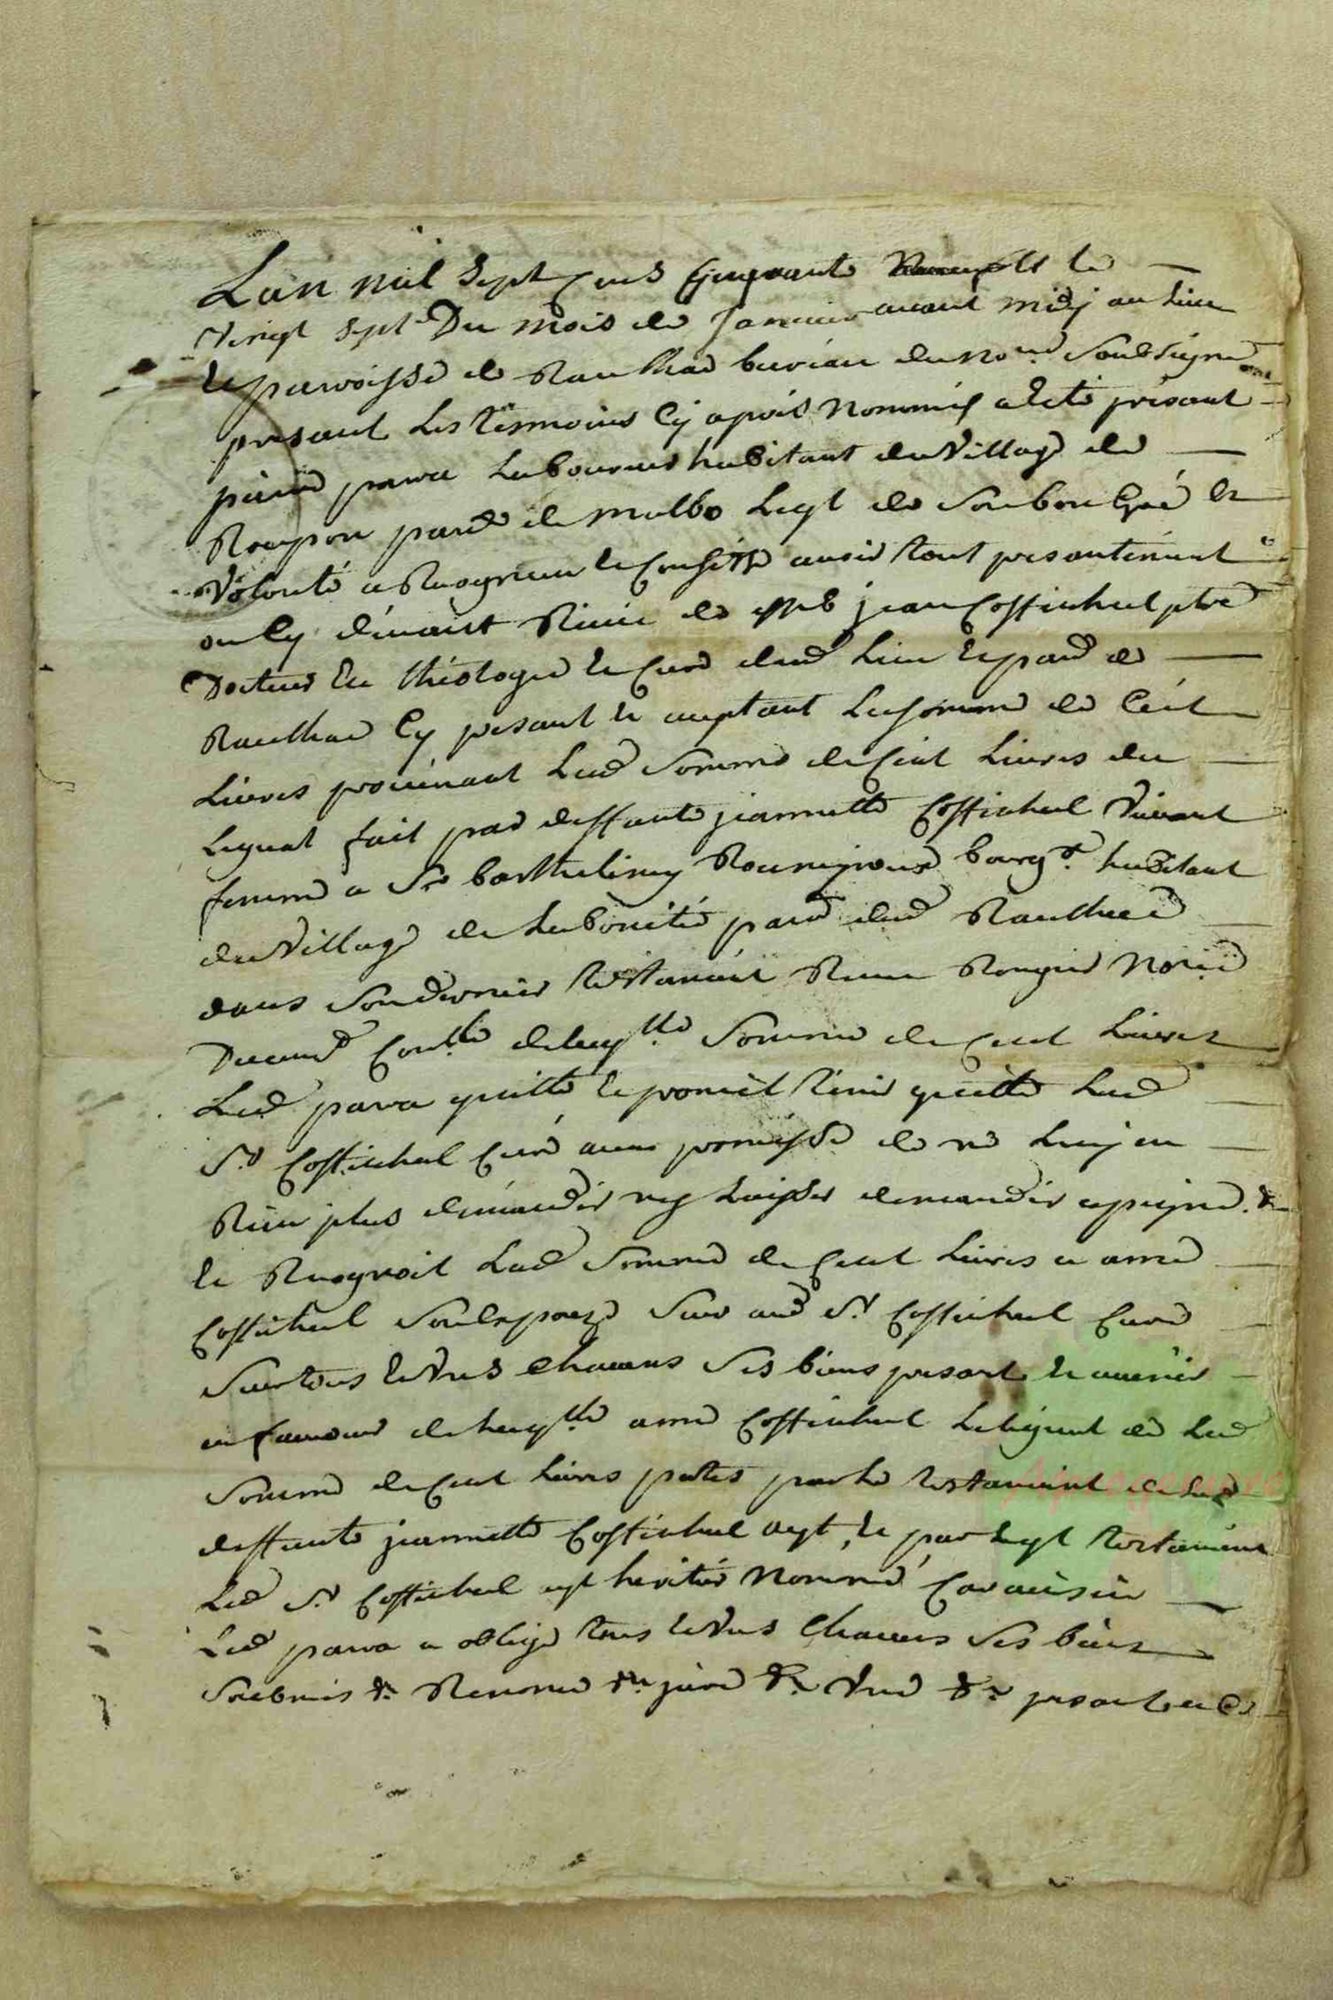 Lan mil sept cens cinquante le
vingt sept Du mois de Janvier avant midj au lieu
et parroisse de Raulhac bureau du no.re soubsigné
presant les temoins cy apres Nommés a eté présant
pierre parra laboureur habitant du village de
par.e de malbo leql de son bon gré et
volonté a Recogneu et confessé avoir tout presantement
ou cy devant Receu de m.re jean Coffinhal ptre
Docteur en théologie et curé dud lieu et par.e de
Raulhac cy presant et aceptant la somme de cent
livres provenant lad somme de cent livres du
leguat fait par deffunte jeannette Coffinhal vivant
femme a S.r barthelimy bourg.s habitant
du village de par.e dud Raulhac
dans son dernier testament Receu No.re
De laqlle somme de cent livres
Led parra quitte et promet tenir quitte led
S.r Coffinhal curé avec promesse de ne luy en
Rien plus demander ny laisser demander a peyne &
et Recognoit lad somme de cent livres a
Coffinhal sur aud S.r Coffinhal curé
sur tous et uns chacuns ses biens presant et avenir
en faveur de laqlle Coffinhal de lad
somme de cent livres par le testament de lad
deffunte jeannette Coffinhal et par leql testament
led S.r Coffinhal est heritier Nommé
Led parra a obligé tous et uns chacuns ses biens
soubmis & Renoncé & juré &